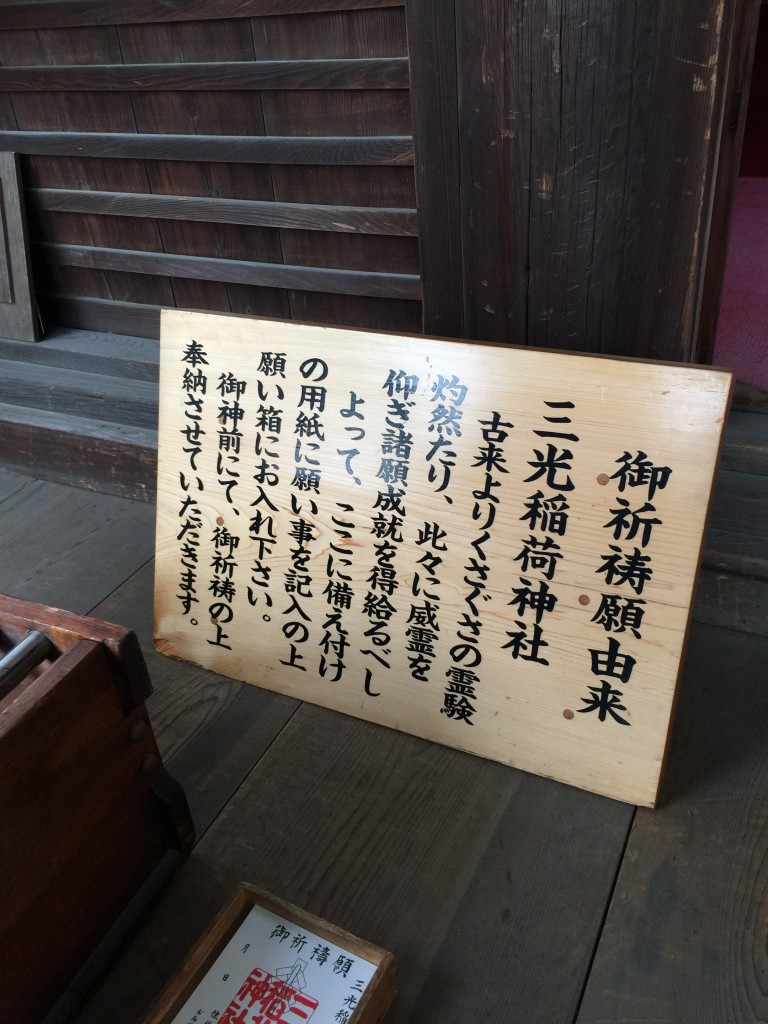 御祈祷願由来
三光稲荷神社
古来よりくさぐさの霊験
灼然たり、此々に威霊を
仰ぎ諸願成就を得給るべし
よって、ここに備え付け
の用紙に願い事を記入の上
願い箱にお入れ下さい。
御神前にて、御祈祷の上
奉納させていただきます。
御祈禱願
三光稲
月 日
三
稲
神社